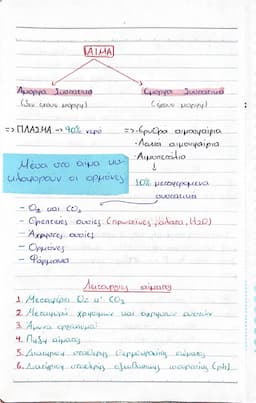 ΑΙΜΑ
Άμορφα Συστατικά Έμμορφα Συστατικά
(Δεν έχουν μορφή) (έχουν μορφή)
=> ΠΛΑΣΜΑ → 90% νερό => · Ερυθρα αιμοσφαίρια
· Λευκα αιμοσφαίρια
· Αιμοπετάλια
Μέσα στο αιμα κυ-
κλοφορουν οι ορμόνες
10% μεταφερόμενα
συστατικά
- O₂ και CO₂
- Θρεπτικές ουσίες (πρωτεϊνες, άλατα, H₂O)
- Άχρηστες ουσίες
- Ορμόνες
- Φάρμακα
Λειτουργίες αίματος
1. Μεταφορά O₂ κ' CO₂
2. Μεταφορά χρησιμων και αχρηστων ουσιών
3. Άμυνα οργανισμού
4. Πήξη αίματος
5. Διατήρηση σταθερής θερμοκρασίας σώματος
6. Διατήρηση σταθερής οξεοβασικής ισορροπίας (ph)